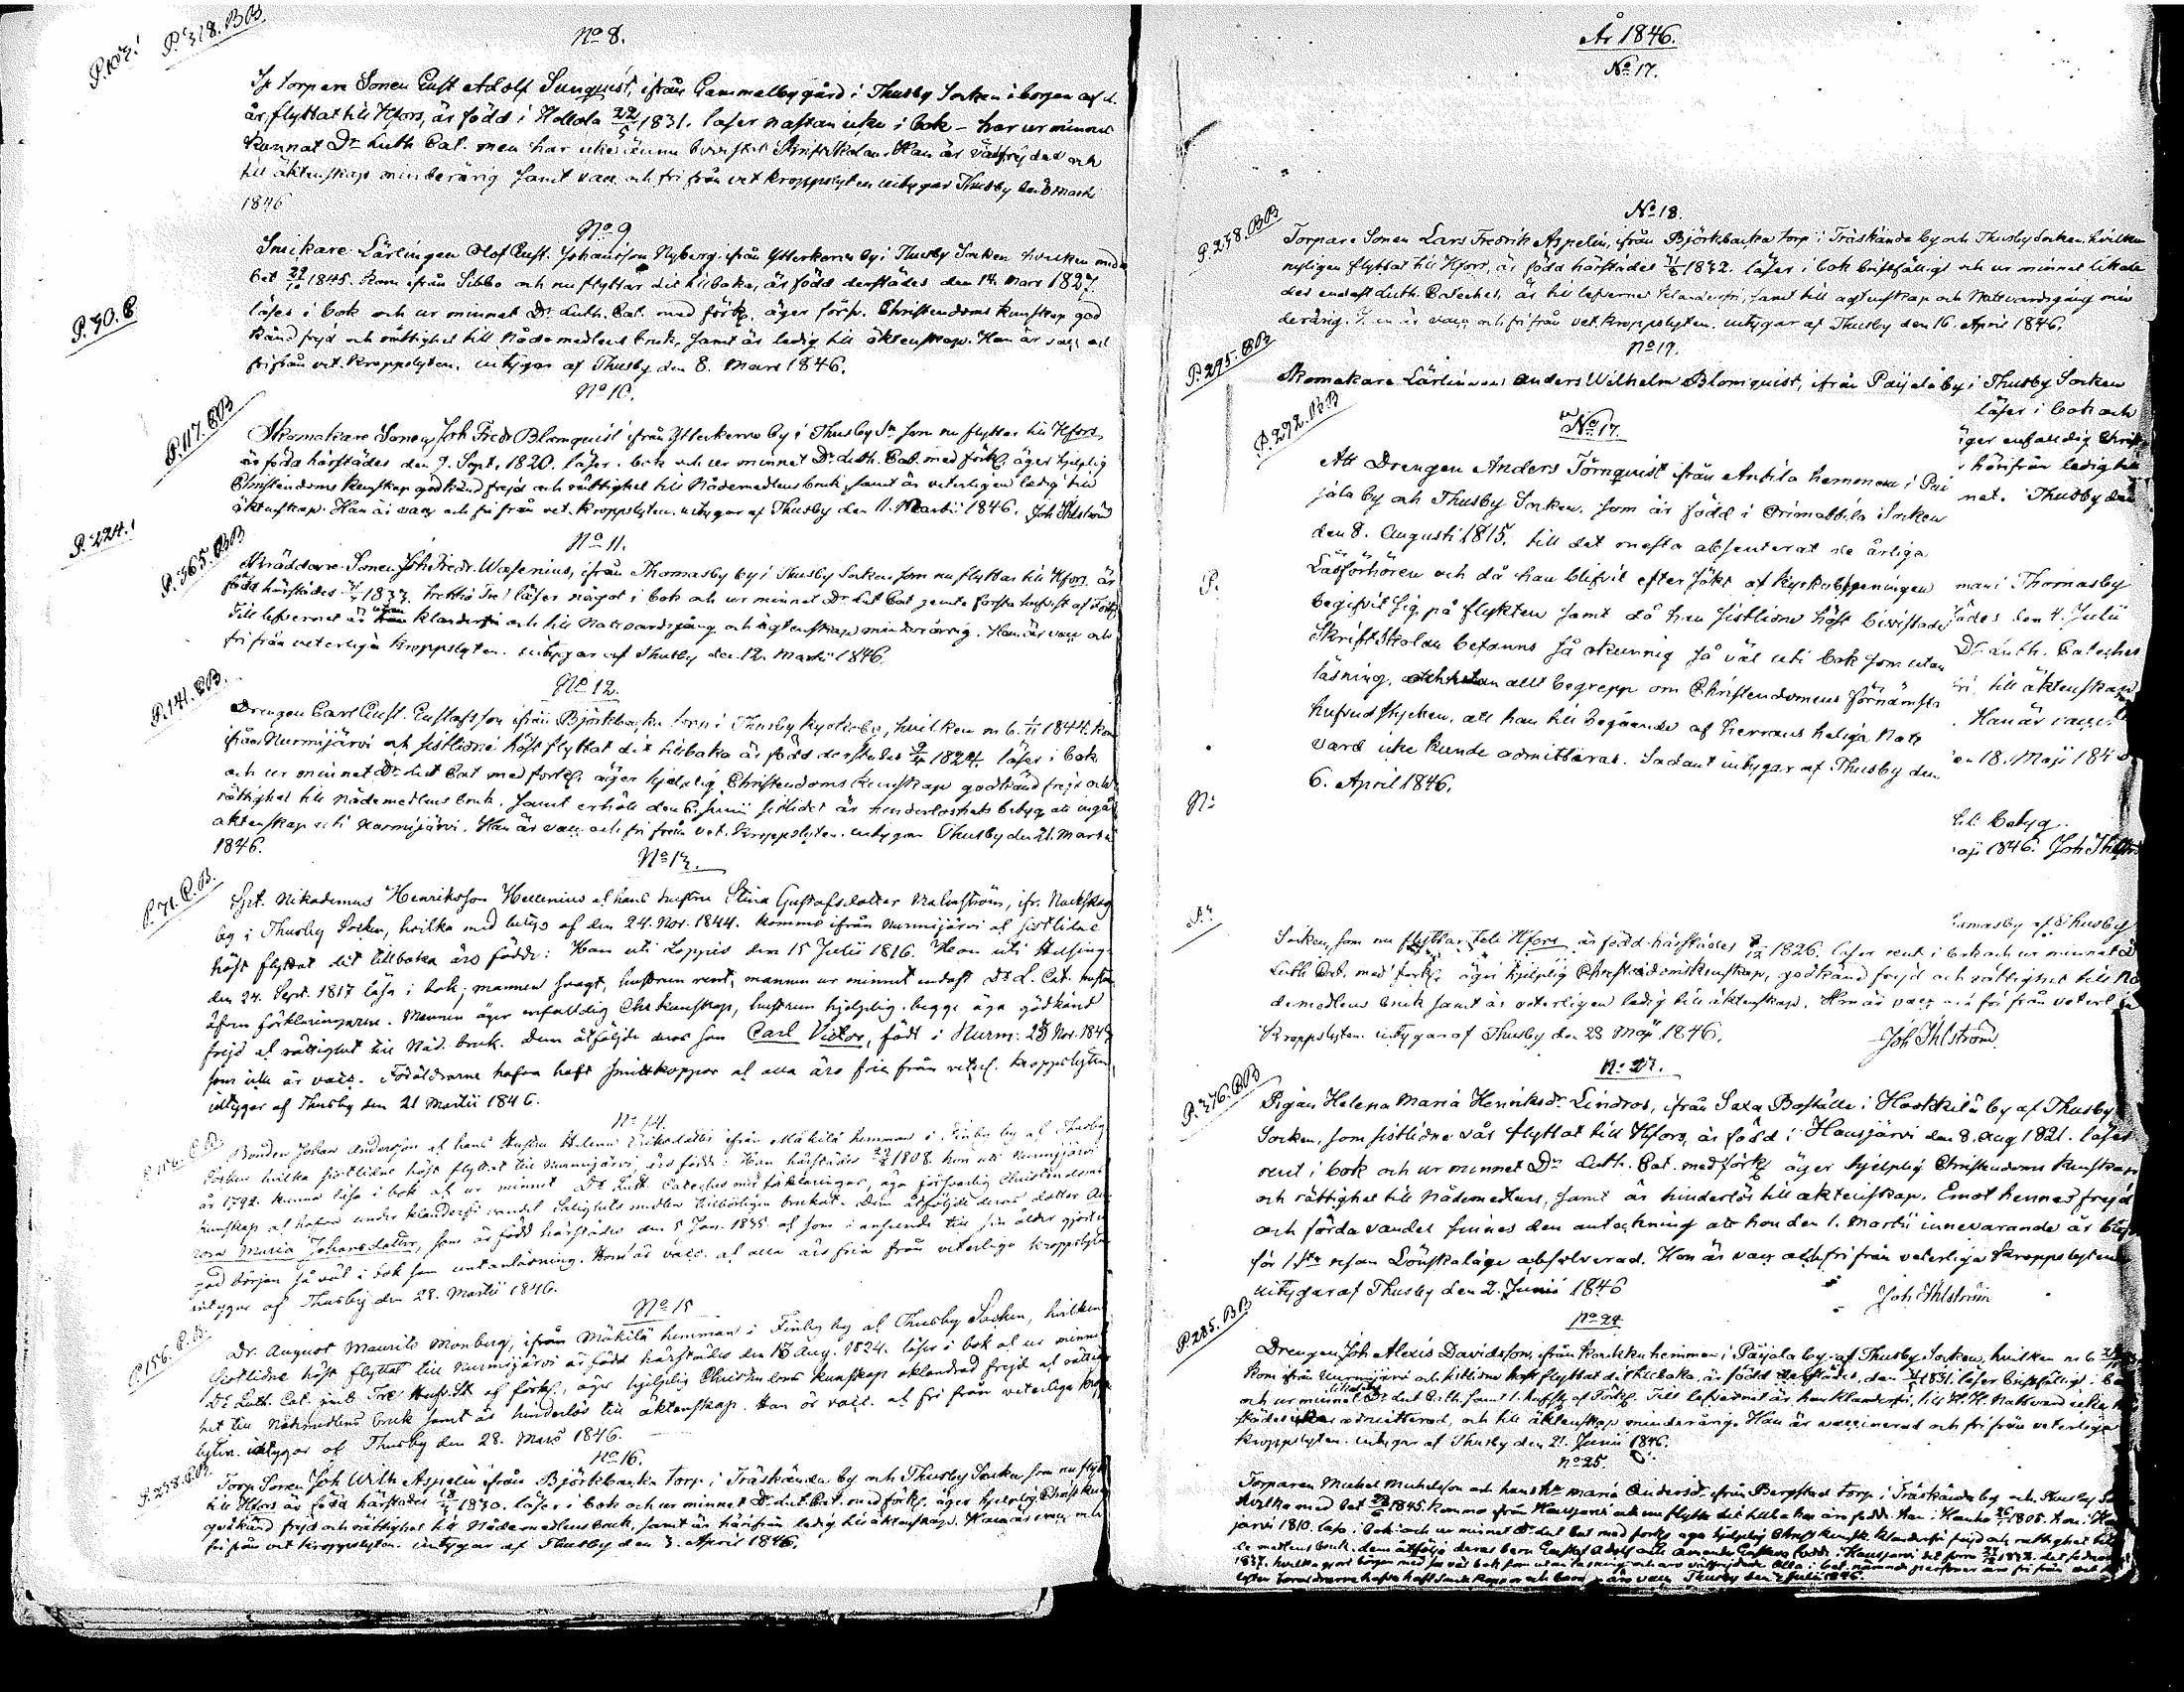 P. 318. BB
No 8.
torpare Sonen Gust Adolf Sunquist, ifrån Gammelbygård i Thusby Socken i början af d.
år, flyttat till Hfors, är född i Hollola 22/5 1831. läser nästan icke i bok – har ur minnet
kunnat Dr Luth Cat. men har icke ännu bevistat Skriftskolan. Han är välfrejdad och
till äktenskap minderårig samt vacc och fri från vet kroppslyten intygar Thusby den Martii
1846
P. 30. C
No 9
Snickare Lärlingen Olof Gust. Johansson Nyberg ifrån Ytterkervo by i Thusby Socken hvilken med
bet 1845. kom ifrån Sibbo och nu flyttar dit tillbaka, är född derstädes den 14. Mars 1827.
läser i bok och ur minnet Dr Luth. Cat. med förkl. äger försv. Christendoms kunskap god
känd frejd och rättighet till Nådemedlens bruk, samt är ledig till äktenskap. Han är vacc och
fri från vet. kroppslyten. intygar af Thusby den 8. Mars 1846.
P. 117. BB
No 10.
Skomakare Sonen Joh Fredr Blomquist ifrån Ytterkervo by i Thusby Sn som nu flyttar till Hfors,
är född härstädes den 9. Sept. 1820. läser i bok och ur minnet Dr Luth. Cat. med förkl. äger hjelplig
Christendoms kunskap godkänd frejd och rättighet till Nådemedlens bruk samt är veterligen ledig till
äktenskap. Han är vacc och fri från vet. kroppslyten. intygar af Thusby den 11. Martii 1846. Joh Ihlström
P. 224.
P. 365. BB
No 11.
Skräddare Sonen Joh Fredr. Wasenius, ifrån Thomasby by i Thusby Socken som nu flyttar till Hfors. är
född härstädes 1833. läser något i bok och ur minnet Dr Lut Cat jemte första hufvst af Förkl.
Till lefvernet är klanderfri och till Nattvardsgång och ägtenskap minderårig. Han är vacc och
fri från veterliga kroppslyten. intygar af Thusby den 12. Martii 1846.
P. 141. BB.
No 12.
Drengen Carl Gust. Gustafsson ifrån Björkbacka torp i Thusby kyrkoby, hvilken m b. 1844. kom
ifrån Nurmijärvi och sistlidne höst flyttat dit tillbaka är född derstädes 1824. läser i bok
och ur minnet Dr Lut Cat med förkl. äger hjelplig Christendoms kunskap godkänd frejd och
rättighet till Nådemedlens bruk. samt erhöll den 6. Junii sistlidet år hinderlöshets betyg att ingå
äktenskap uti Nurmijärvi. Han är vacc och fri från vet. kroppslyten. intygar Thusby den 21. Martii
1846.
P. 71. C.B.
No 13.
Spt. Nikodemus Henriksson Hellenius at hans hustru Stina Gustafsdotter Malmström, ifr. Nackskog
by i Thusby Socken, hvilka med betyg af den 24. Nov. 1844. kommo ifrån Nurmijärvi at sistlidne
höst flyttat dit tillbaka äro födde: Han uti Loppis den 15 Julii 1816. Hon uti Helsing
den 24. Sept. 1817 läsa i bok; mannen svagt, hustrun rent, mannen ur minnet endast Drs L. Cat. hustrun
äfven förklaringarne. Mannen äger enfaldig Chr. kunskap, hustrun hjelplig. begge äga godkänd
frejd at rättighet till Nåd. bruk. Dem åtföljde deras son Carl Victor, född i Nurm: Nov. 184
som icke är vacc. Föräldrarne hafva haft smittkoppor at alla äro fria från veterl. kroppslyten,
intygar af Thusby den 21 Martii 1846.
No 14.
Bonden Johan Andersson at hans hustru Helena Eriksdotter ifrån Mäkilä hemman i Finby by at Thusby
Socken hvilka sistlidne höst flyttat till Nurmijärvi, äro födde: Han härstädes 1808. hon uti Nurmijärvi
år 1792. kunna läsa i bok at ur minnet Drs Luth. Cateches med förklaringar, äga försvarlig Christendoms
kunskap at hafva under klanderfri vandel Salighets medlen tillbörligen brukat. Dem åtföljde deras dotter
Maria Johansdotter, som är född härstädes den 5 Jan. 1835 at som i anseende till sin ålder gjort en
god början så väl i bok som utanläsning. Hon är vacc. at alla äro fria från veterliga kroppslyten
intygar af Thusby den 28. Martii 1846.
P. 156. C. B.
No 15
Dr. August Maurits Monberg, ifrån Mäkilä hemman i Finby by at Thusby Socken, hvilken
sistlidne höst flyttat till Nurmijärvi är född härstädes den 15 Aug. 1824. läser i bok at ur minnet
Drs Luth. Cat. Hufv. St. af förkl., äger hjelplig Christendoms kunskap oklandrad frejd at rättig
het till Nådemedlens bruk samt är hinderlös till äktenskap. Han är vacc. at fri från veterliga kropps
lyten. intygar af Thusby den 28. Mars 1846.
P. 238. BB.
No 16.
Torp. Sonen Joh Wilh Aspelin ifrån Björkbacka torp i Träskända by och Thusby Socken som nu flytt
till Hfors är född härstädes 1830. läser i bok och ur minnet Dr Lut. Cat. med förkl. äger hjelplig Christ kun
godkänd frejd och rättighet till Nådemedlens bruk, samt är härifrån ledig till äktenskap. Han är vacc och
fri från vet kroppslyten. intygar af Thusby den 3. April 1846.
År 1846.
No 17.
P. 238. BB
No 18.
Torpare Sonen Lars Fredrik Aspelin, ifrån Björkbacka torp i Träskända by och Thusby Socken, hvilken
nyligen flyttat till Hfors, är född härstädes 1832. läser i bok bristfälligt och ur minnet likale
des endast Luth. Cateches, är till lefvernet klanderfri, samt till ägtenskap och Nattvardsgång min
derårig. Han är vacc och fri från vet. kroppslyten. intygar af Thusby den 16. April 1846.
P. 295. BB
No 19.
Skomakare Lärlingen Anders Wilhelm Blomquist, ifrån Paijala by i Thusby Socken
läser i bok och
äger enfaldig Christ
härifrån ledig till
Thusby den
P. 292. BB
No 17.
Att Drengen Anders Törnquist ifrån Antila hemman i Pai
jala by och Thusby Socken, som är född i Orimattila Socken
den 8. Augusti 1815, till det mesta absenterat de årliga
Läsförhören och då han blifvit eftersökt af Kyrkobetjeningen
begifvit sig på flykten samt då han sistlidne höst bivistade
Skriftskolan befanns så okunnig så väl uti bok som utan
läsning, allt begrepp om Christendomens förnämsta
hufvudstycken, att han till begående af Herrans heliga Natt
vard icke kunde admitteras. Sådant intygar af Thusby den
6. April 1846.
man i Thomasby
den 4. Julii
Dr Luth. Cateches
till äktenskap
Han är vacc.
18. Maji 184
betyg.
1846. Joh Ihlström
af Thusby
Socken, som nu flyttar till Hfors är född härstädes 1826. läser rent i bok och ur minnet
Luth Cat. med förkl. äger hjelplig Christendomskunskap, godkänd frejd och rättighet till Nå
demedlens bruk samt är veterligen ledig till äktenskap. Han är vacc och fri från veterl
kroppslyten. intygar af Thusby den 23 Maji 1846.
Joh Ihlström
P. 376. BB
No 23.
Pigan Helena Maria Henriksdr Lindros, ifrån Saxa Boställe i Haskkilä by af Thusby
Socken, som sistlidne vår flyttat till Hfors, är född i Hausjärvi den 8. Aug 1821. läser
rent i bok och ur minnet Dr Luth. Cat. med förkl. äger hjelplig Christendoms kunskap
och rättighet till Nådemedlens, samt är hinderlös till äktenskap. Emot hennes frejd
och förda vandel finnes den anteckning att hon den 1. Martii innevarande år blef
för 1sta resan Lönskaläge absolverad. Hon är vacc och fri från veterliga kroppslyten
intygar af Thusby den 2. Junii 1846
Joh. Ihlström
P. 285. BB
No 24
Drengen Joh Alexis Davidsson, ifrån hemman i Paijala by af Thusby Socken, hvilken m b
kom ifrån Nurmijärvi och sistlidne höst flyttat dit tillbaka, är född den 1831. läser bristfälligt i
och ur minnet Dr Lut Cath. samt 1. hufvst af Förkl. Till lefvernet är han klanderfri, till H. H. Nattvard icke
admitterad, och till äktenskap minderårig. Han är vaccinerad och fri från veterliga
kroppslyten. intygar af Thusby den 21. Junii 1846.
No 25.
Torparen Michel Michelsson och hans hu Maria Andersd. ifrån Bergstad torp i Träskända by och Thusby
hvilka med bet 1845. kommo ifrån Hausjärvi och nu flytta dit tillbaka äro födde. Han i 1805. hon i
järvi 1810. läsa i bok och ur minnet Dr Lut Cat med förkl. äga hjelplig Christ kunsk. klanderfri frejd och rättighet till
medlens bruk. dem åtfölja deras barn Gustaf Adolf och Amanda Gustava födde i Hausjärvi det förra 1832. det sednare
1837. hvilka gjort början med så väl bok som utanläsning och äro välfrejdade. Alla i bet. nämnde personer äro fri från
lyten. Föräldrarne hafva haft smittkoppor och äro vacc. Thusby den Julii 1846.